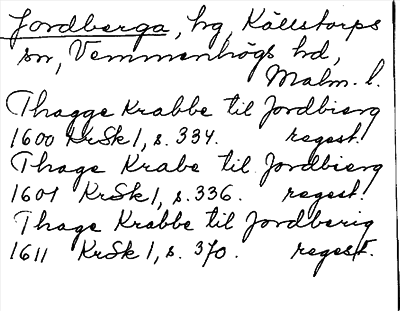 Jordberga, hg, Källstorps
sn, Vemmenhögs hd,
Malm. l.
Thagge Krabbe til Jordbierg
1600 KrSk 1, s. 334. regest.
Thage Krabe til Jordbierg
1601 KrSk 1, s. 336. regest.
Thage Krabbe til Jordberig
1611 KrSk 1, s. 370. regest.